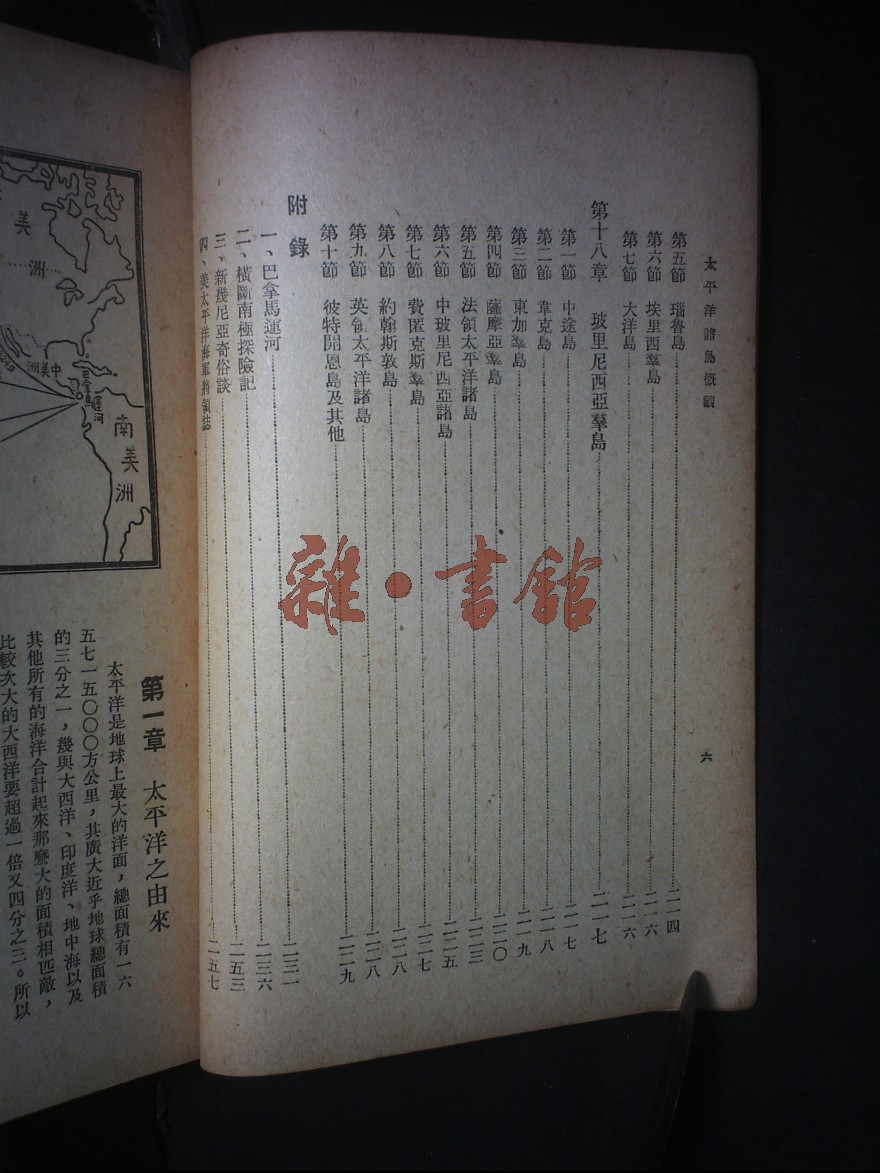 太平洋諸島概觀
六
第五節 瑙魯島……二一四
第六節 埃里西羣島……二一六
第七節 大洋島……二一六
第十八章 玻里尼西亞羣島……二一七
第一節 中途島……二一七
第二節 韋克島……二一八
第三節 東加羣島……二一九
第四節 薩摩亞羣島……二二〇
第五節 法領太平洋諸島……二二三
第六節 中玻里尼西亞諸島……二二五
第七節 費匿克斯羣島……二二七
第八節 約翰斯敦島……二二八
第九節 英領太平洋諸島……二二八
第十節 彼特開恩島及其他……二二九
附錄
一、巴拿馬運河……二三一
二、橫斷南極探險記……二三六
三、新幾尼亞奇俗談……二五三
四、美太平洋海軍將領誌……二五七
雜·書館
美洲
中美洲
巴拿馬運河
南美洲
第一章 太平洋之由來
太平洋是地球上最大的洋面，總面積有一六
五七一五〇〇〇方公里，其廣大近乎地球總面積
的三分之一，幾與大西洋、印度洋、地中海以及
其他所有的海洋合計起來那麼大的面積相匹敵，
比較次大的大西洋要超過一倍又四分之三。所以